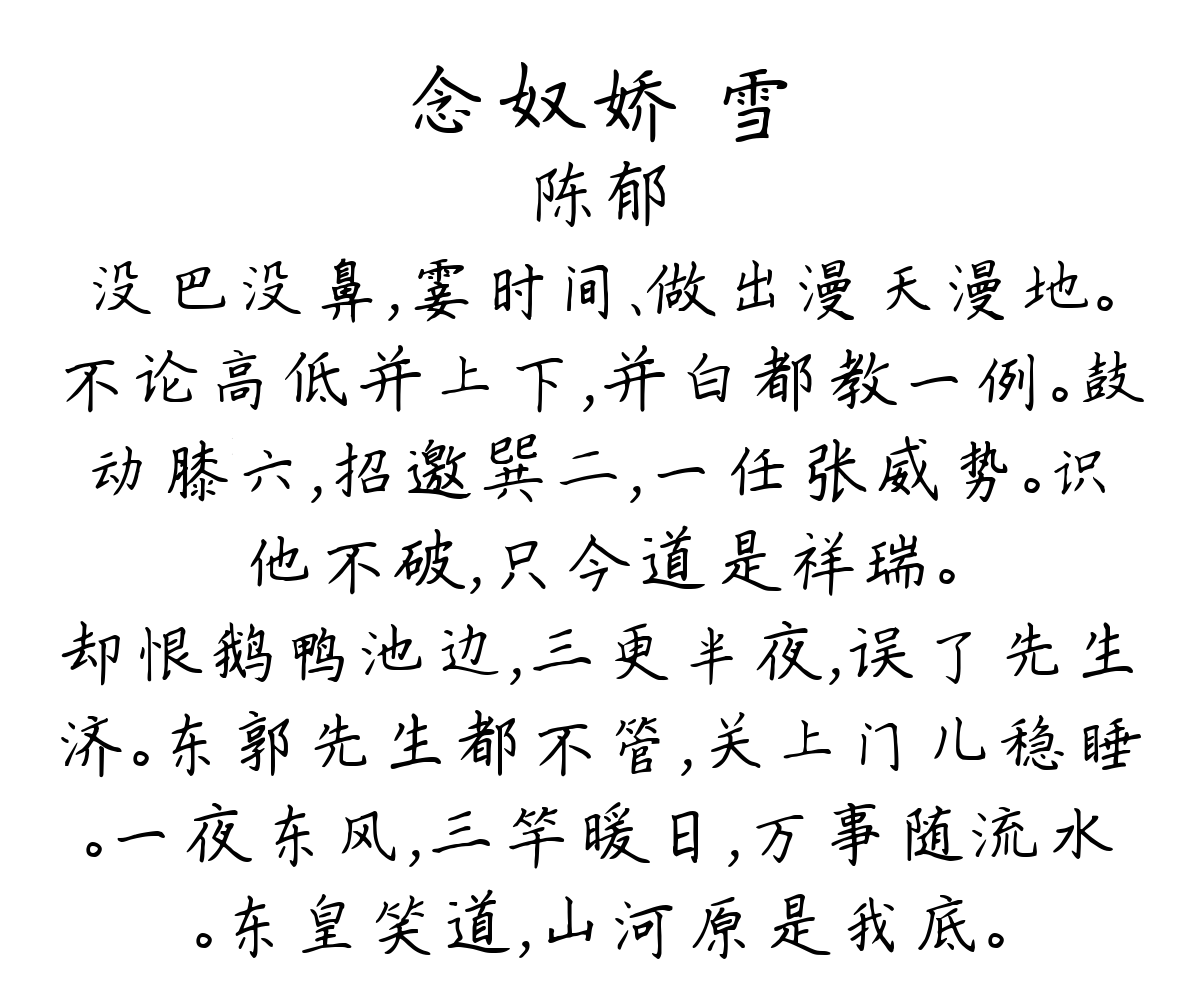 念奴娇 雪
陈郁
没巴没鼻,霎时间、做出漫天漫地。
不论高低并上下,并白都教一例。鼓
动膝六,招邀巽二,一任张威势。识
他不破,只今道是祥瑞。
却恨鹅鸭池边,三更半夜,误了先生
济。东郭先生都不管,关上门儿稳睡
。一夜东风,三竿暖日,万事随流水
。东皇笑道,山河原是我底。